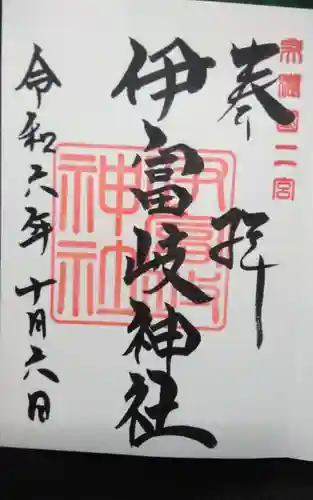 美濃国二宮
奉拝
伊富岐神社
伊富岐神社
令和六年十月六日